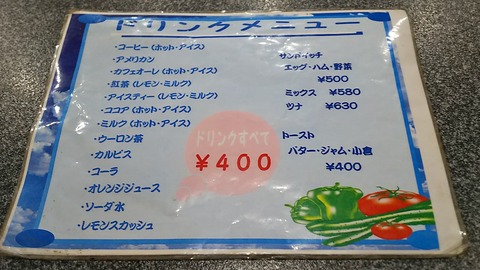 ドリンクメニュー
・コーヒー(ホット・アイス)
・アメリカン
・カフェオーレ(ホット・アイス)
・紅茶(レモン・ミルク)
・アイスティー(レモン・ミルク)
・ココア(ホット・アイス)
・ミルク(ホット・アイス)
・ウーロン茶
・カルピス
・コーラ
・オレンジジュース
・ソーダ水
・レモンスカッシュ
ドリンクすべて
¥400
サンドイッチ
エッグ・ハム・野菜
¥500
ミックス ¥580
ツナ ¥630
トースト
バター・ジャム・小倉
¥400